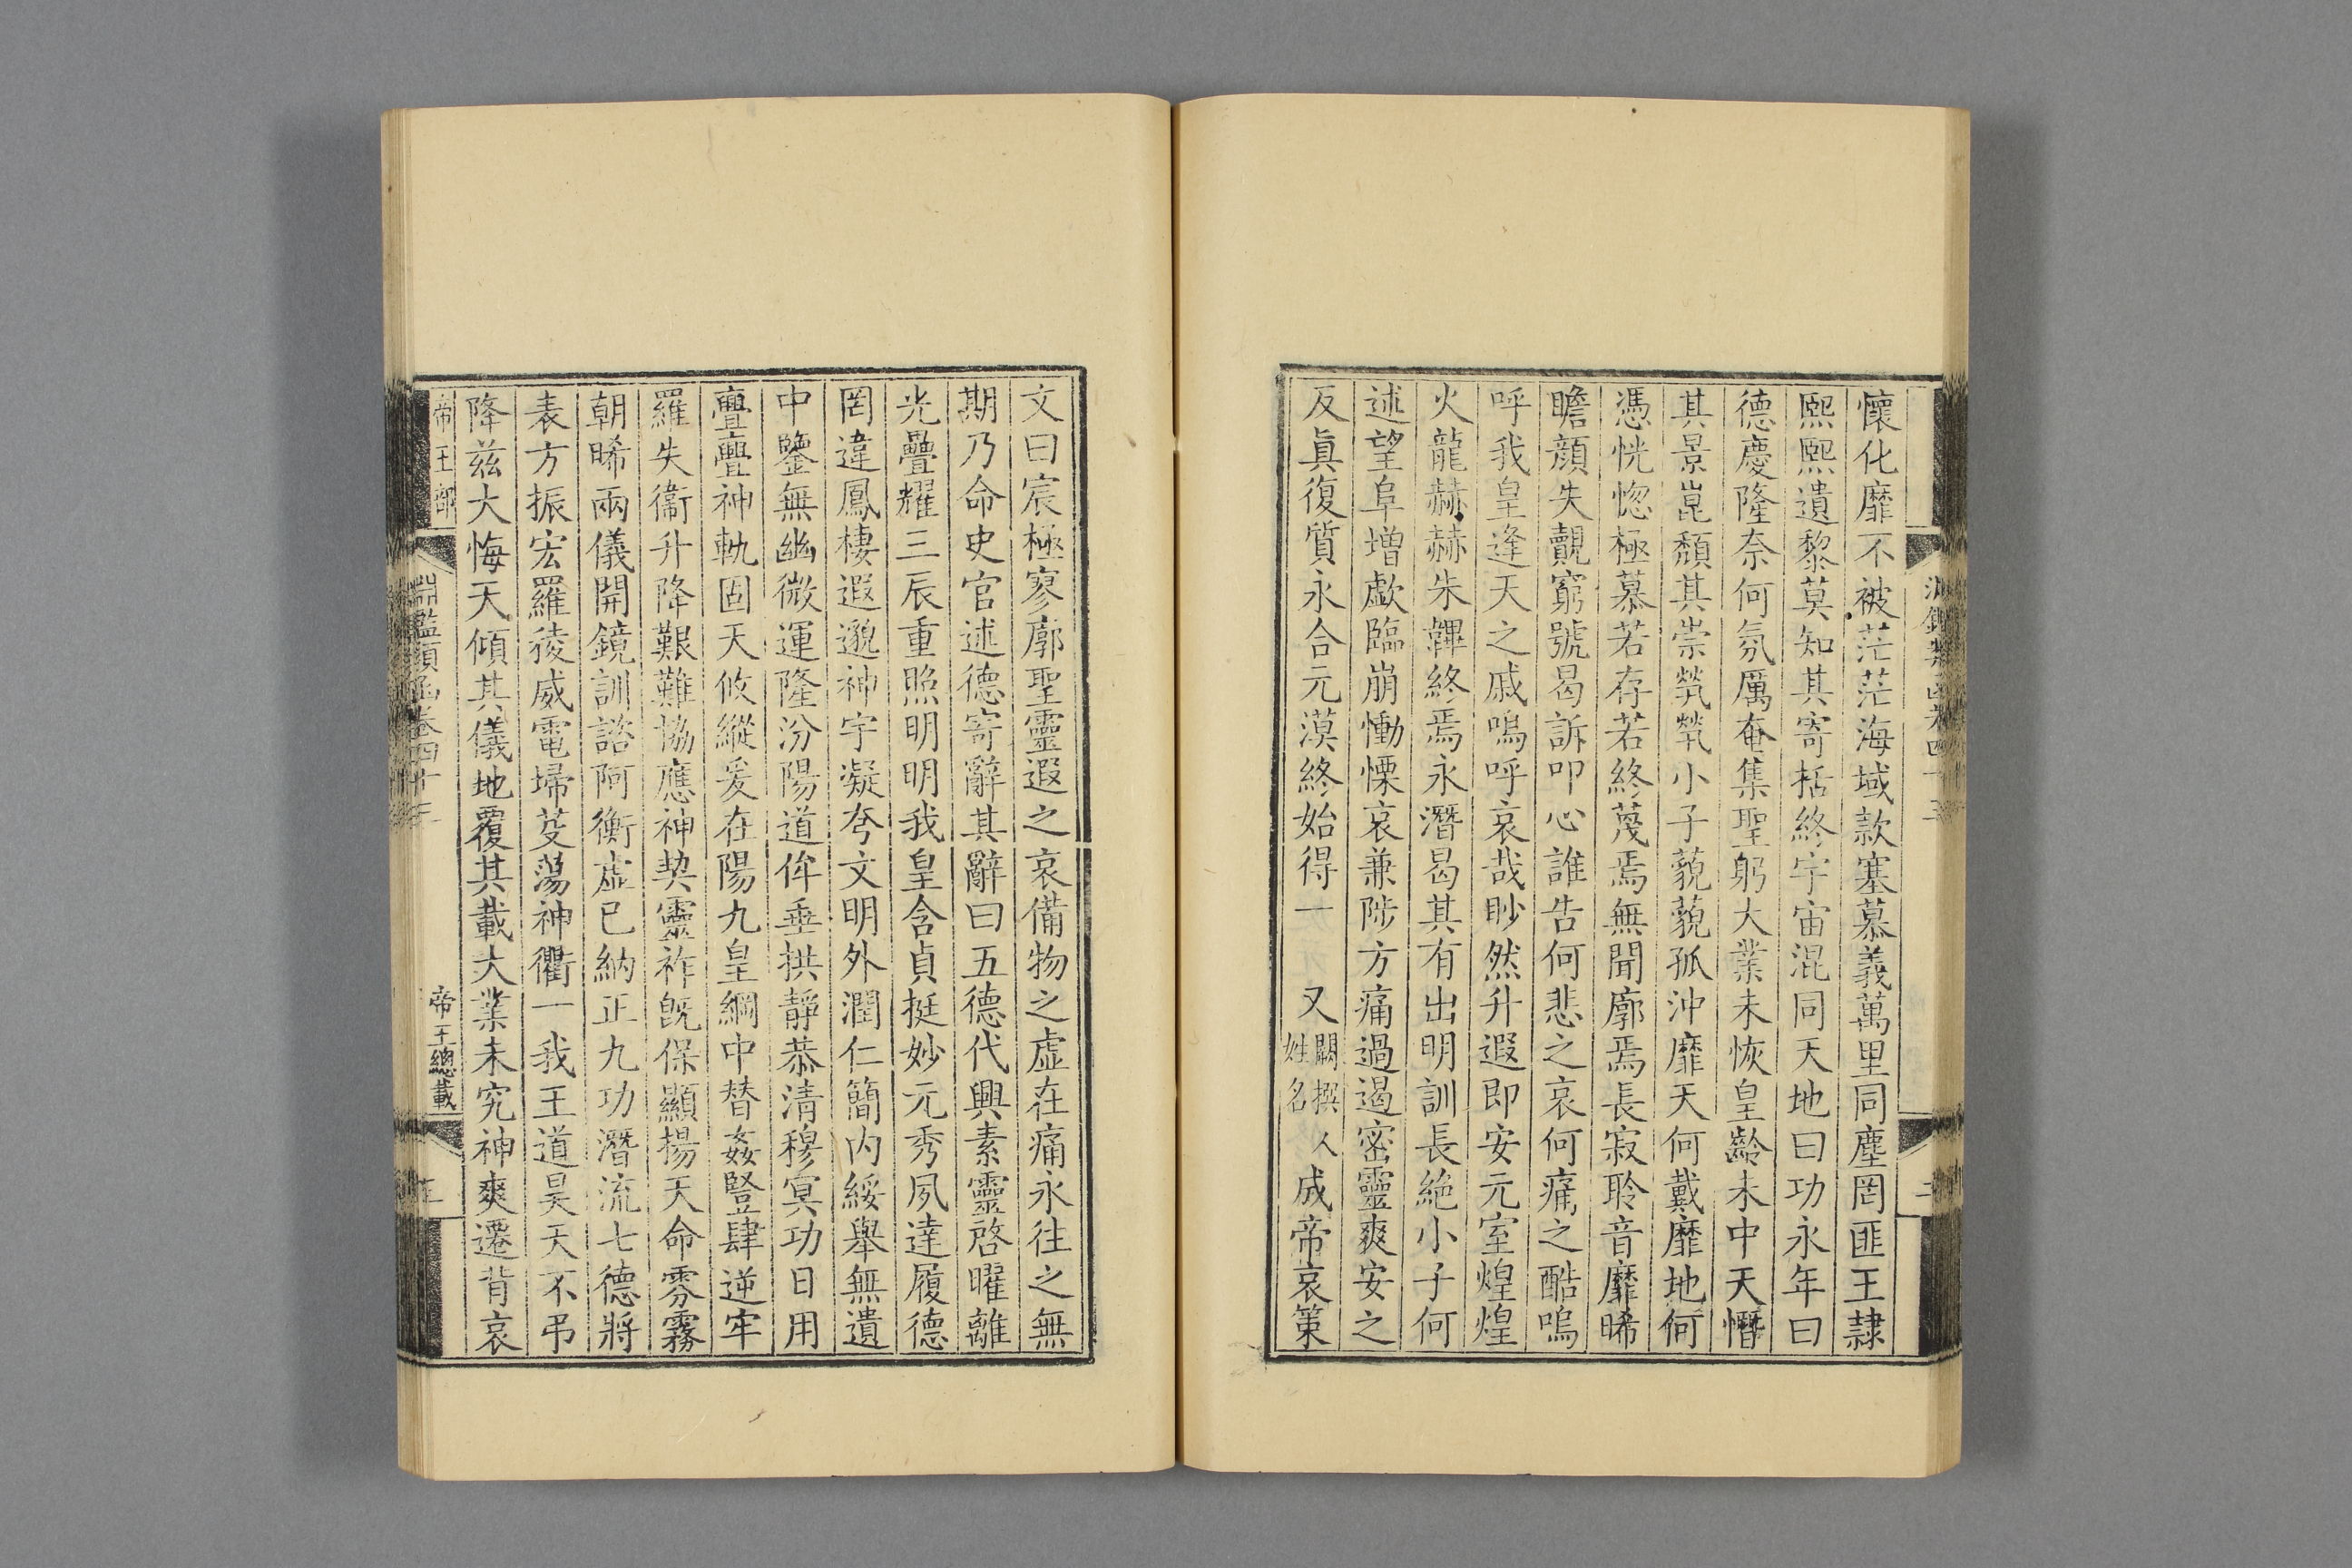 懷化靡不被茫茫海域款塞慕義萬里同塵罔匪王隷
熙熙遺黎莫知其寄括終宇宙混同天地曰功永年曰
德慶隆奈何氛厲奄集聖躬大業未恢皇齡未中天㬱
其景崑頹其崇煢煢小子藐藐孤沖靡天何戴靡地何
憑恍惚極慕若存若終蔑焉無聞廓焉長寂聆音靡晞
瞻顔失覿窮號曷訴叩心誰告何悲之哀何痛之酷嗚
呼我皇逢天之戚嗚呼哀哉眇然升遐即安元室煌煌
火龍赫赫朱韠終焉永潛曷其有出明訓長絶小子何
述望阜增歔臨崩慟慄哀兼陟方痛過遏密靈爽安之
反眞復質永合元漠終始得一 又闕撰人姓名 成帝哀策
文曰宸極寥廓聖靈遐之哀備物之虛在痛永往之無
期乃命史官述德寄辭其辭曰五德代興素靈啓曜離
光疊耀三辰重照明明我皇含貞挺妙元秀夙達履德
罔違鳳棲遐邈神宇凝夸文明外潤仁簡内綏舉無遺
中鑒無幽微運隆汾陽道侔垂拱靜恭清穆冥功日用
亹亹神軌固天攸縱爰在陽九皇綱中替姦豎肆逆牢
羅失衞升降艱難協應神契靈祚旣保顯揚天命雰霧
朝晞兩儀開鏡訓諮阿衡虛已納正九功潛流七德將
表方振宏羅稜威電埽芟蕩神衢一我王道昊天不弔
降茲大悔天傾其儀地覆其載大業未究神爽遷背哀
帝王部 淵鑑類函卷四十三 帝王總載